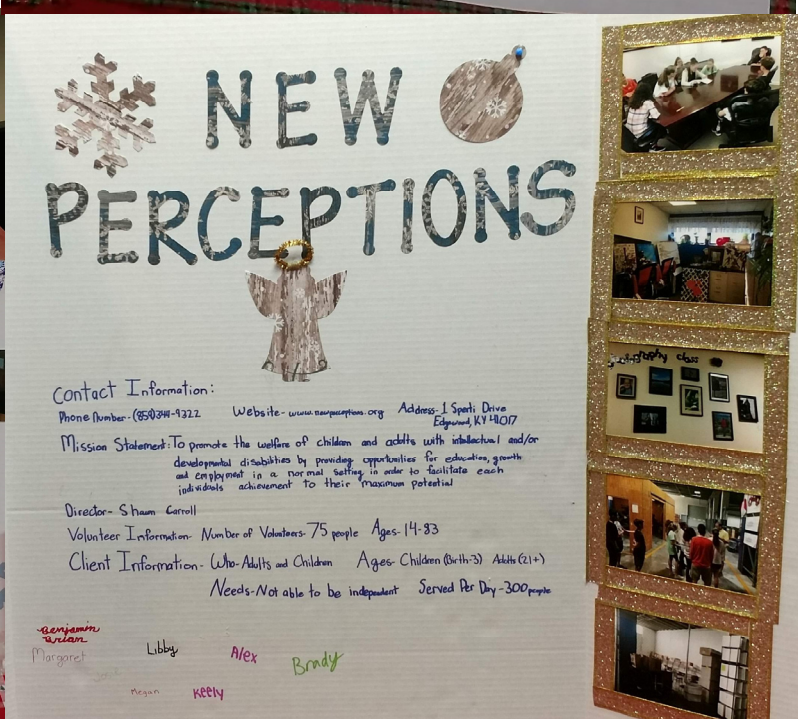 NEW
PERCEPTIONS
Contact Information:
Phone Number-(859)344-9322 Website-www.newperceptions.org Address-1 Sperti Drive
Edgewood, KY 41017
Mission Statement: To promote the welfare of children and adults with intellectual and/or
developmental disabilities by providing opportunities for education, growth
and employment in a normal setting in order to facilitate each
individuals achievement to their maximum potential
Director- Shawn Carroll
Volunteer Information- Number of Volunteers-75 people Ages-14-83
Client Information-Who-Adults and Children Ages-Children (Birth-3) Adults (21+)
Needs-Not able to be independent Served Per Day-300 people
Benjamin
Brian
Margaret
Libby
Alex
Brady
Megan
Keely
class